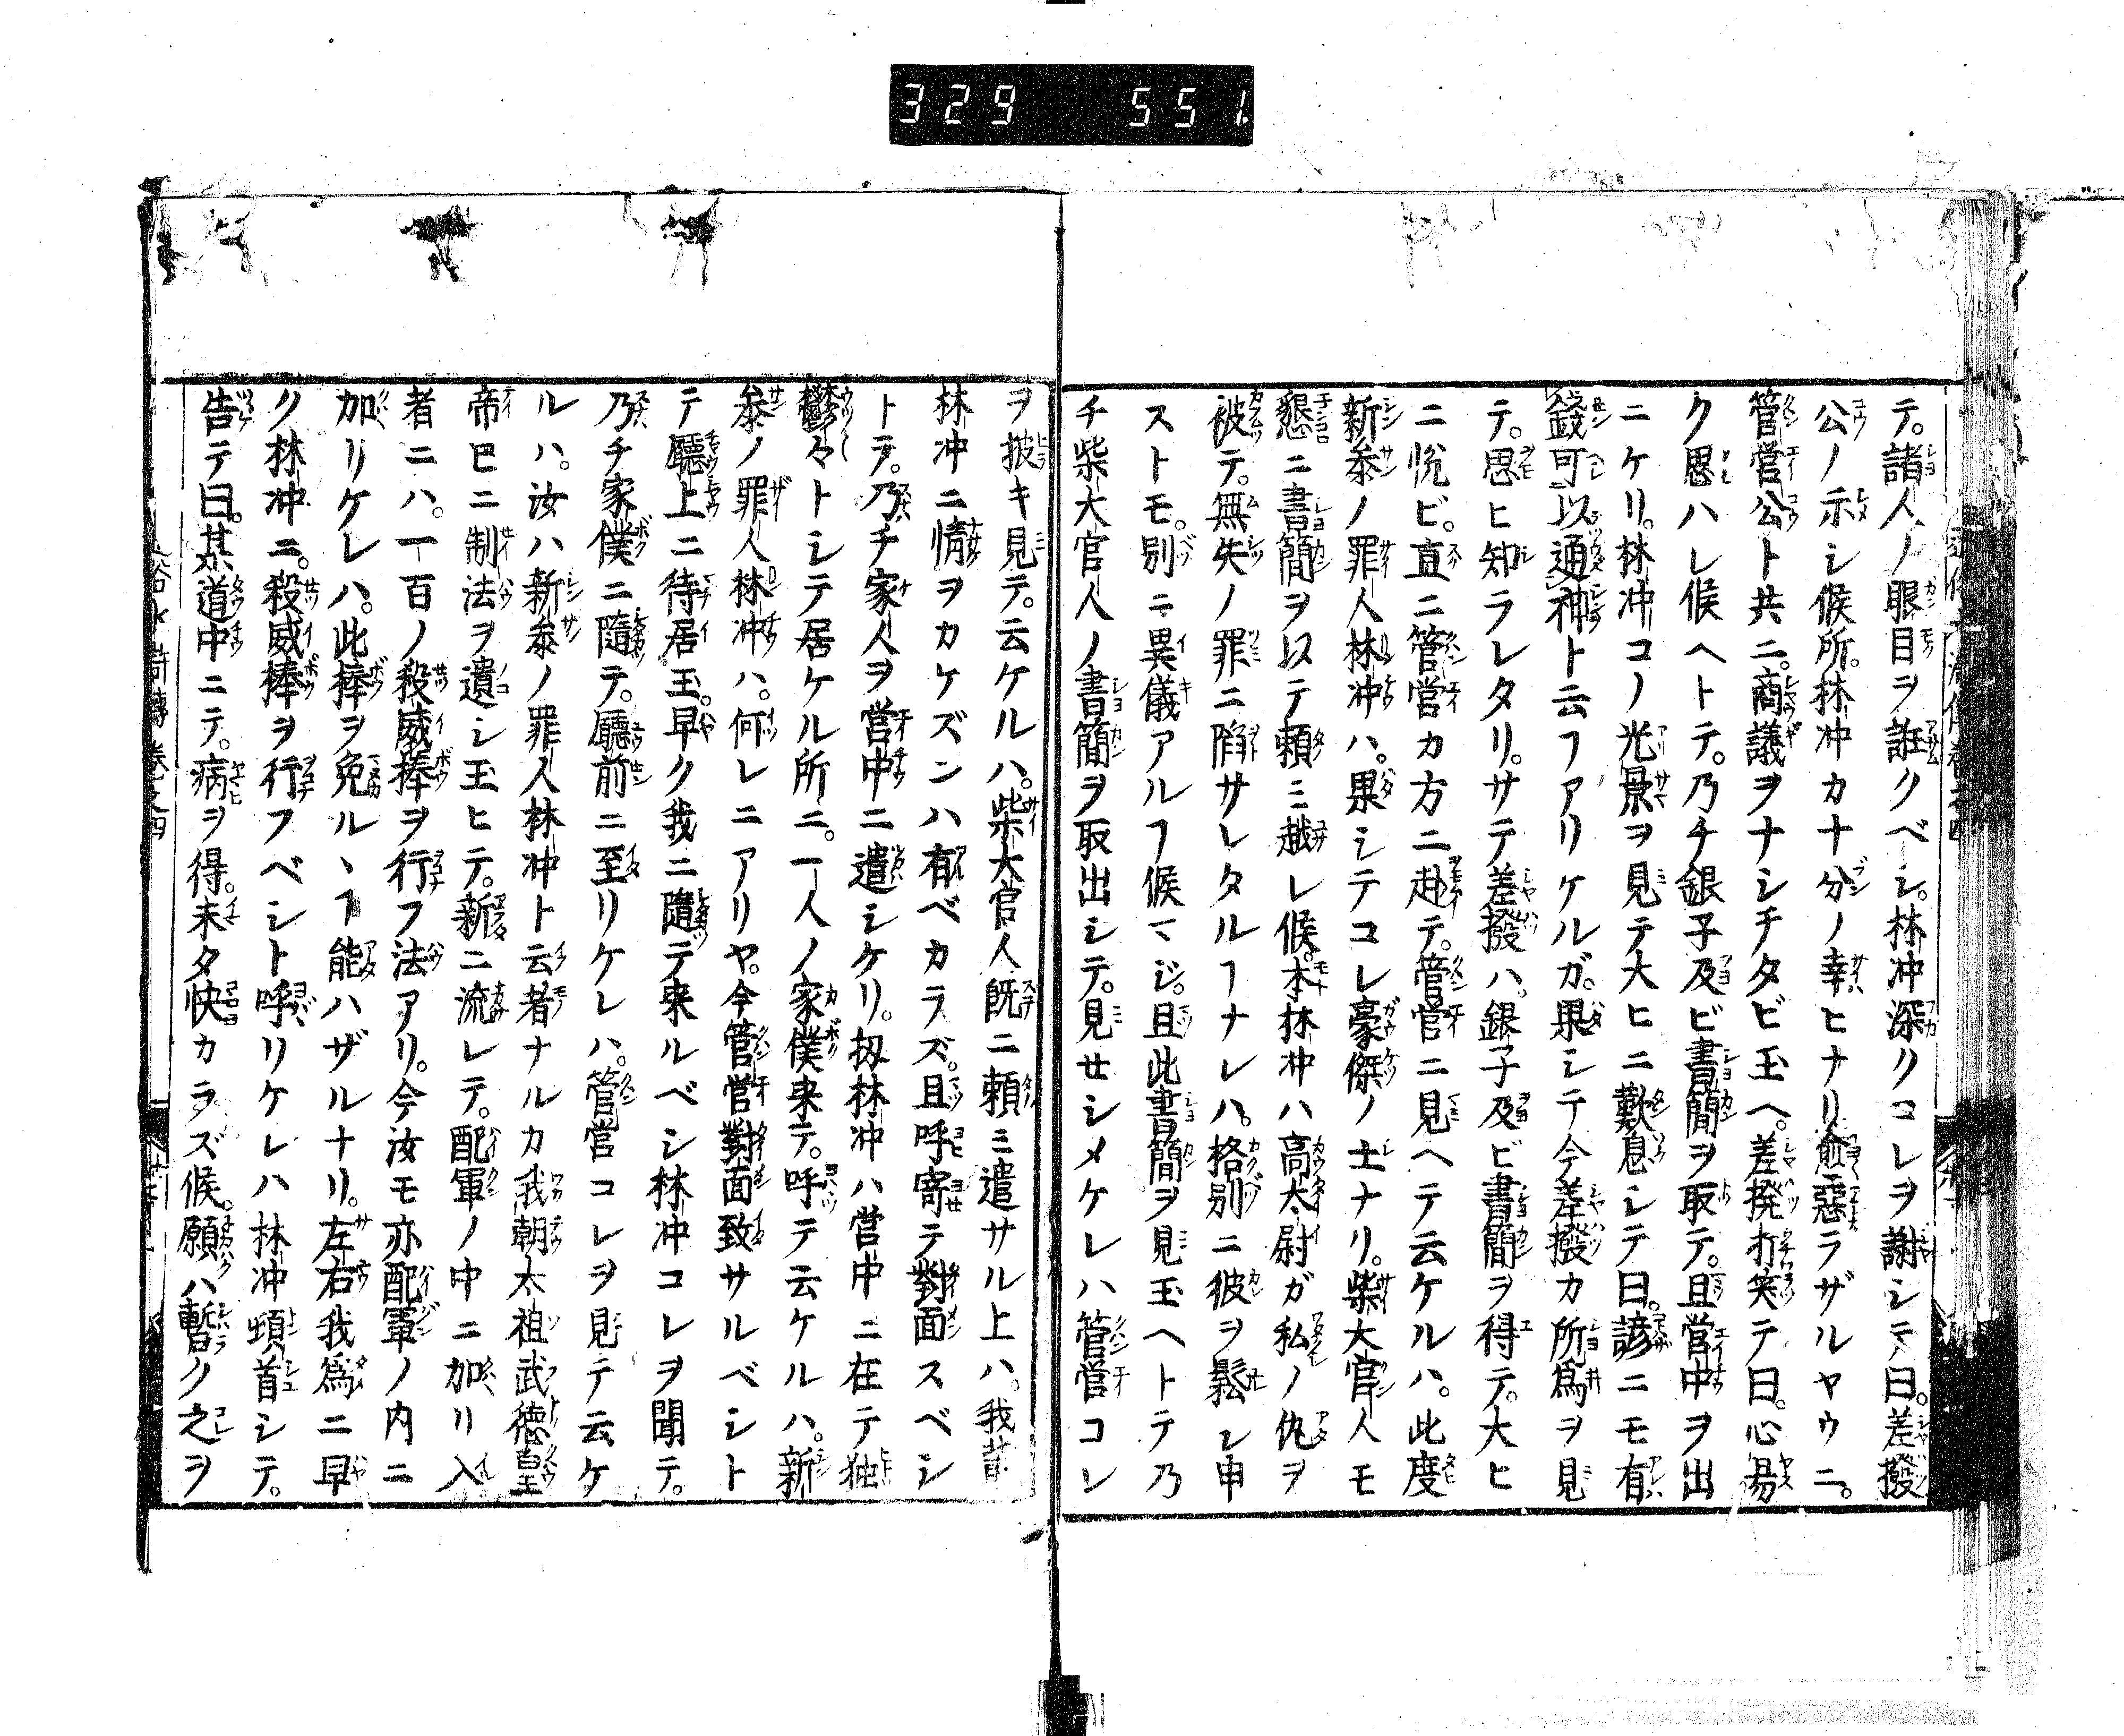 329 551.
テ。諸人ノ眼目ヲ誑クベシ。林冲深クコレヲ謝シテ曰。差撥
公ノ示シ候所。林冲カナ十分ノ幸ヒナリ愈惡ラザルヤウニ。
管営公ト共ニ。商議ヲナシチタビ玉ヘ。差撥打笑テ曰。心易
ク思ハレ候ヘトテ。乃チ銀子及ビ書簡ヲ取テ。且営中ヲ出
ニケリ。林冲コノ光景ヲ見テ大ヒニ歎息シテ曰。諺ニモ有
錢可以通神ト云フアリケルガ。果シテ今差撥カ所爲ヲ見
テ。思ヒ知ラレタリ。サテ差撥ハ。銀子及ビ書簡ヲ得テ。大ヒ
ニ悦ビ。直ニ管営カ方ニ赴テ。管官ニ見ヘテ云ケルハ。此度
新叅ノ罪人林冲ハ。果シテコレ豪傑ノ士ナリ。柴大官人モ
懇ニ書簡ヲ以テ頼ミ越レ候。本林冲ハ高太尉ガ私ノ仇ヲ
被テ。無失ノ罪ニ陷サレタルヿナレハ。格別ニ彼ヲ鬆シ申
ストモ。別ニ異儀アルヿ候マジ。且此書簡ヲ見玉ヘトテ乃
チ柴大官人ノ書簡ヲ取出シテ。見セシメケレハ管営コレ
ヲ披キ見テ。云ケルハ。柴大官人既ニ頼ミ遣サル上ハ。我甘
林冲ニ情ヲカケズンハ有ベカラズ。且呼寄テ對面スベシ
トテ。乃チ家人ヲ営中ニ遣シケリ。扨林冲ハ営中ニ在テ独
鬱々トシテ居ケル所ニ。一人ノ家僕来テ。呼テ云ケルハ。新
叅ノ罪人林冲ハ。何レニアリヤ。今管営對面致サルベシト
テ廳上ニ待居玉。早ク我ニ隨テ来ルベシ林冲コレヲ聞テ。
乃チ家僕ニ隨テ。廳前ニ至リケレハ。管営コレヲ見テ云ケ
ルハ。汝ハ新叅ノ罪人林冲ト云者ナルカ我朝太祖武徳皇
帝巳ニ制法ヲ遺シ玉ヒテ。新ニ流レテ。配軍ノ中ニ加リ入
者ニハ。一百ノ殺威捧ヲ行フ法アリ。今汝モ亦配軍ノ内ニ
加リケレハ。此棒ヲ免ルヽヿ能ハザルナリ。左右我爲ニ早
ク林冲ニ。殺威棒ヲ行フベシト呼リケレハ林冲頓首シテ。
告テ曰。某道中ニテ。病ヲ得。未タ快カラズ候。願ハ暫ク之ヲ